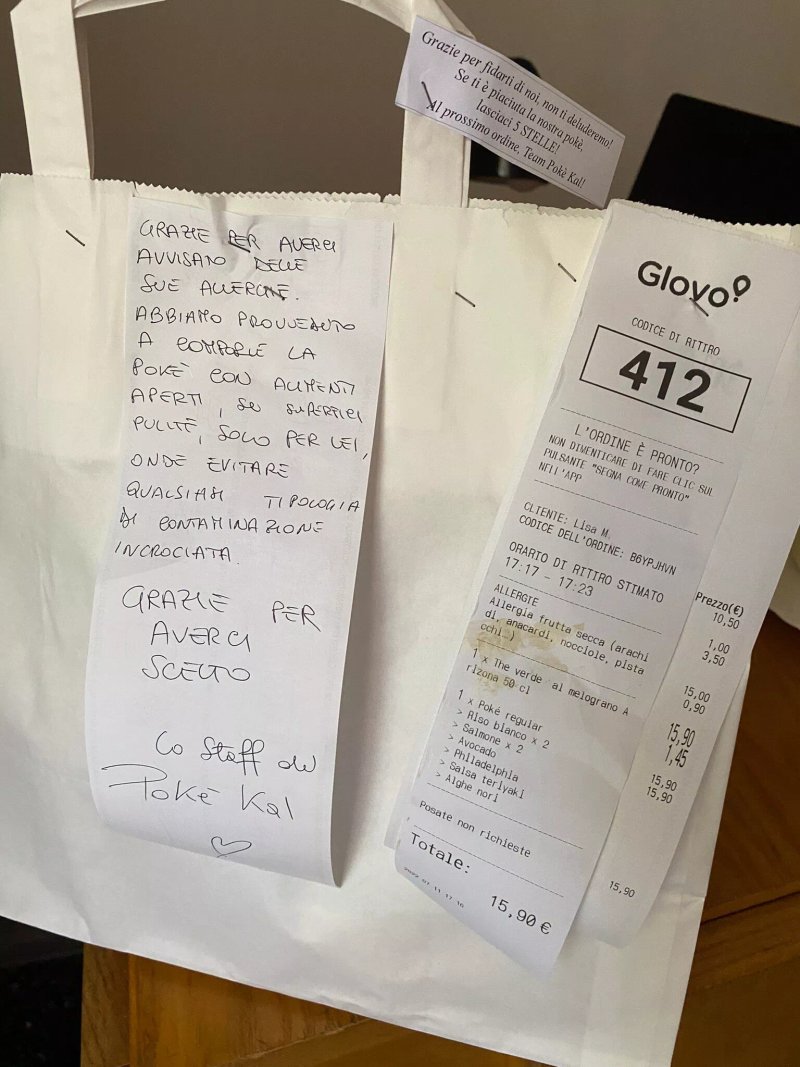 Grazie per fidarti di noi, non ti deluderemo!
Se ti è piaciuta la nostra pokè,
lasciaci 5 STELLE!
Al prossimo ordine, Team Pokè Kal!
GRAZIE PER AVERCI
AVVISANO DELLE
SUE ALLERGIE.
ABBIAMO PROVVEDUTO
A COMPORLE LA
POKÈ CON ALIMENTI
APERTI, SU SUPERFICI
PULITE, SOLO PER LEI,
ONDE EVITARE
QUALSIASI TIPOLOGIA
DI CONTAMINAZIONE
INCROCIATA.
GRAZIE PER
AVERCI
SCELTO
Lo Staff del
Pokè Kal
Glovo
CODICE DI RITIRO
412
L'ORDINE È PRONTO?
NON DIMENTICARE DI FARE CLIC SUL
PULSANTE "SEGNA COME PRONTO"
NELL'APP
CLIENTE: Lisa M.
CODICE DELL'ORDINE: B6YPJHVN
ORARIO DI RITIRO STIMATO
17:17 - 17:23
ALLERGIE
Allergia frutta secca (arachi
di, anacardi, nocciole, pista
cchi…)
1 x The verde al melograno A
rizona 50 cl
1 x Poké regular
> Riso bianco x 2
> Salmone x 2
> Avocado
> Philadelphia
> Salsa teriyaki
> Alghe nori
Posate non richieste
Totale: 15,90 €
Prezzo(€)
10,50
1,00
3,50
15,00
0,90
15,90
1,45
15,90
15,90
15,90